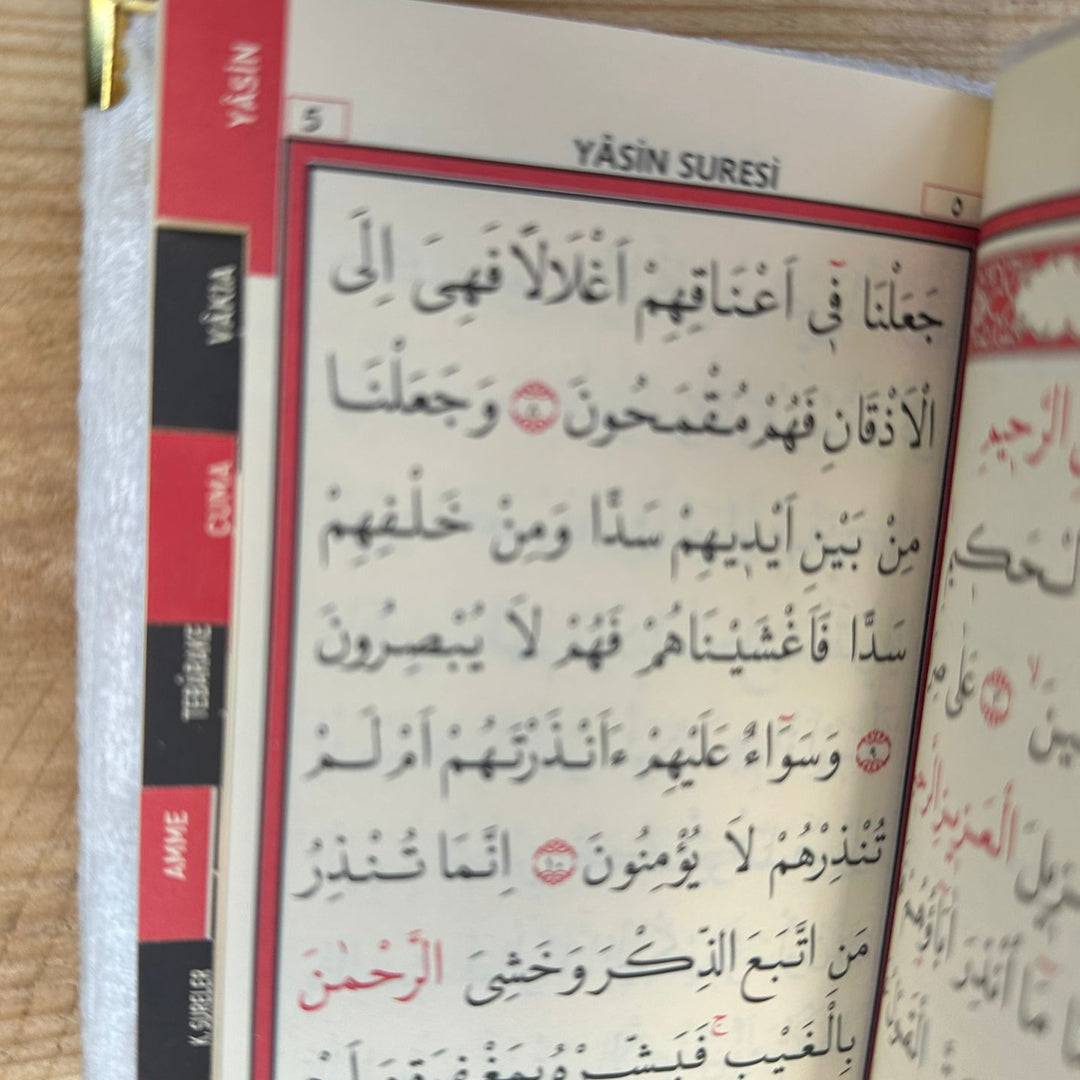 YÂSİN
VÂKIA
CUMA
TEBÂRAKE
AMME
K.SURELER
5
YÂSİN SURESİ
٥
جَعَلْنَا فٓي اَعْنَاقِهِمْ اَغْلَالًا فَهِيَ اِلَى
الْاَذْقَانِ فَهُمْ مُقْمَحُونَ ﴿٨﴾ وَجَعَلْنَا
مِنْ بَيْنِ اَيْدِيهِمْ سَدًّا وَمِنْ خَلْفِهِمْ
سَدًّا فَاَغْشَيْنَاهُمْ فَهُمْ لَا يُبْصِرُونَ
﴿٩﴾ وَسَوَٓاءٌ عَلَيْهِمْ ءَاَنْذَرْتَهُمْ اَمْ لَمْ
تُنْذِرْهُمْ لَا يُؤْمِنُونَ ﴿١٠﴾ اِنَّمَا تُنْذِرُ
مَنِ اتَّبَعَ الذِّكْرَ وَخَشِيَ الرَّحْمٰنَ
بِالْغَيْبِۚ فَبَشِّرْهُ بِمَغْفِرَةٍ